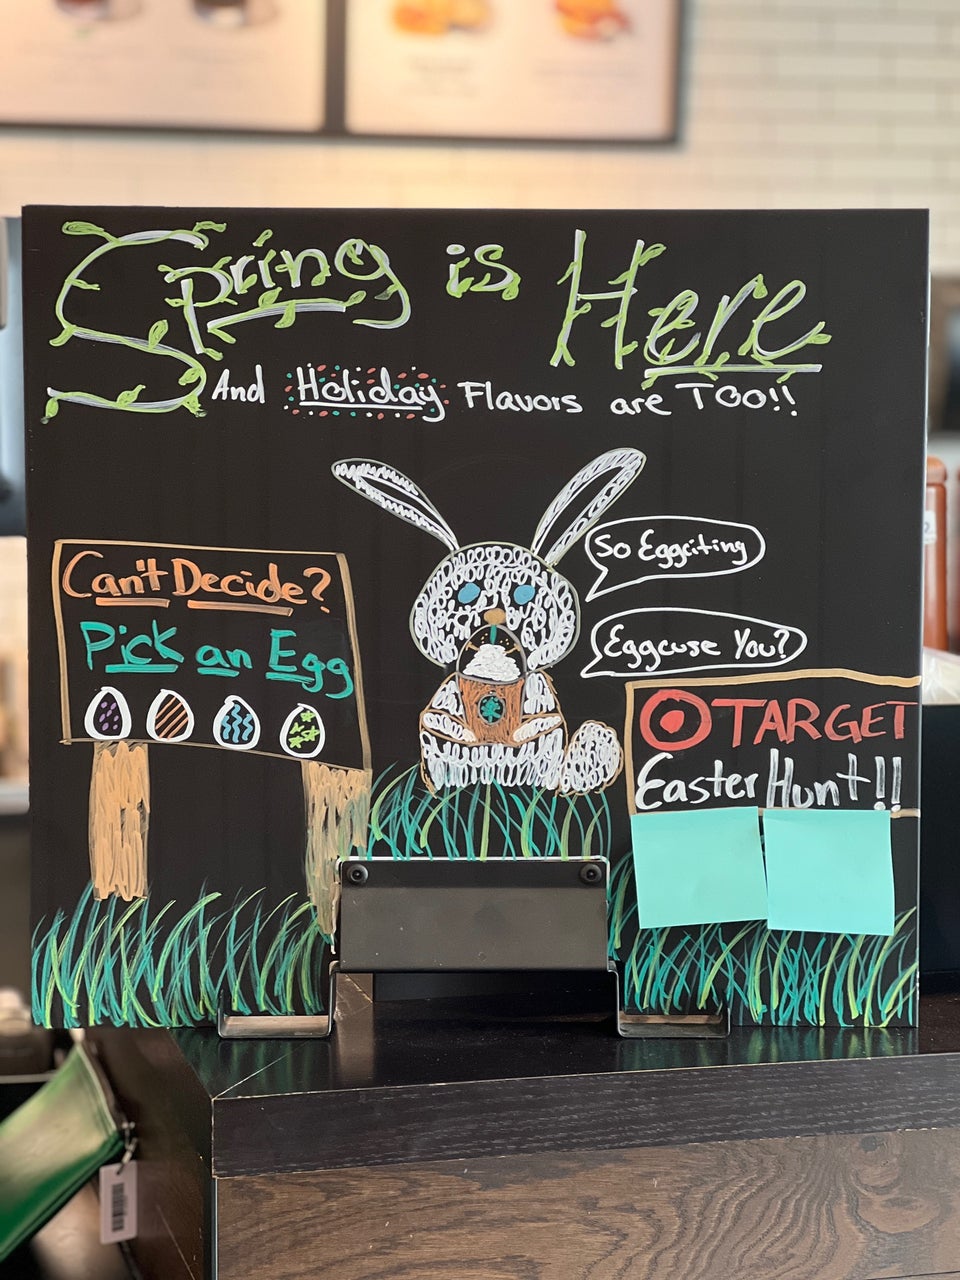 Spring is Here
And Holiday Flavors are TOO!!
So Eggciting
Eggcuse You?
Can't Decide?
Pick an Egg
TARGET
Easter Hunt!!